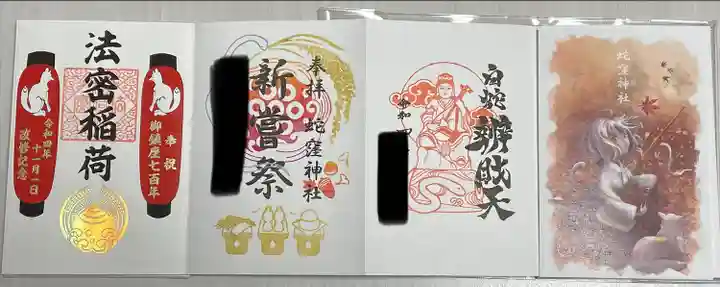 法密稲荷
奉祝
御鎮座七百年
令和四年
十一月一日
改修記念
奉拝
蛇窪神社
新嘗祭
白蛇辨財天
令和四
蛇窪神社